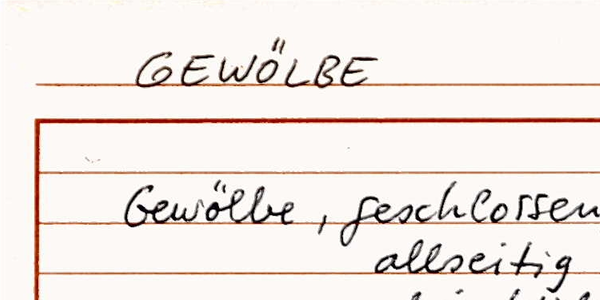 GEWÖLBE
Gewölbe, geschlossen
allseitig